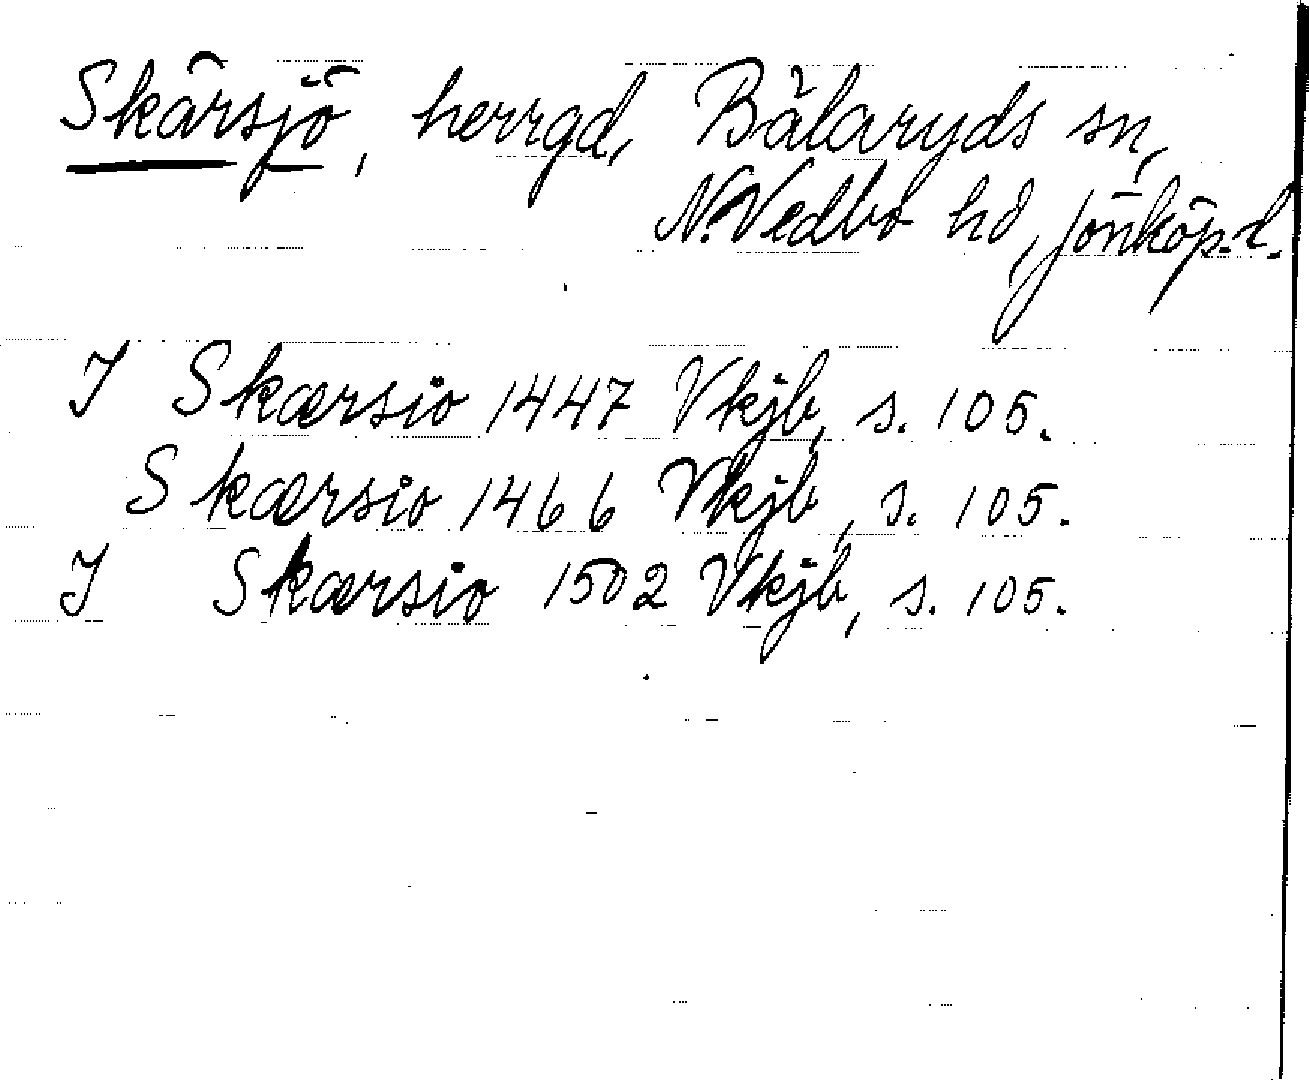 Skärsjö, herrgd, Bälaryds sn,
N. Vedbo hd, Jönköp. l.
I Skærsio 1447 Vkjb, s. 105.
Skærsio 1466 Vkjb, s. 105.
I Skærsio 1502 Vkjb, s. 105.